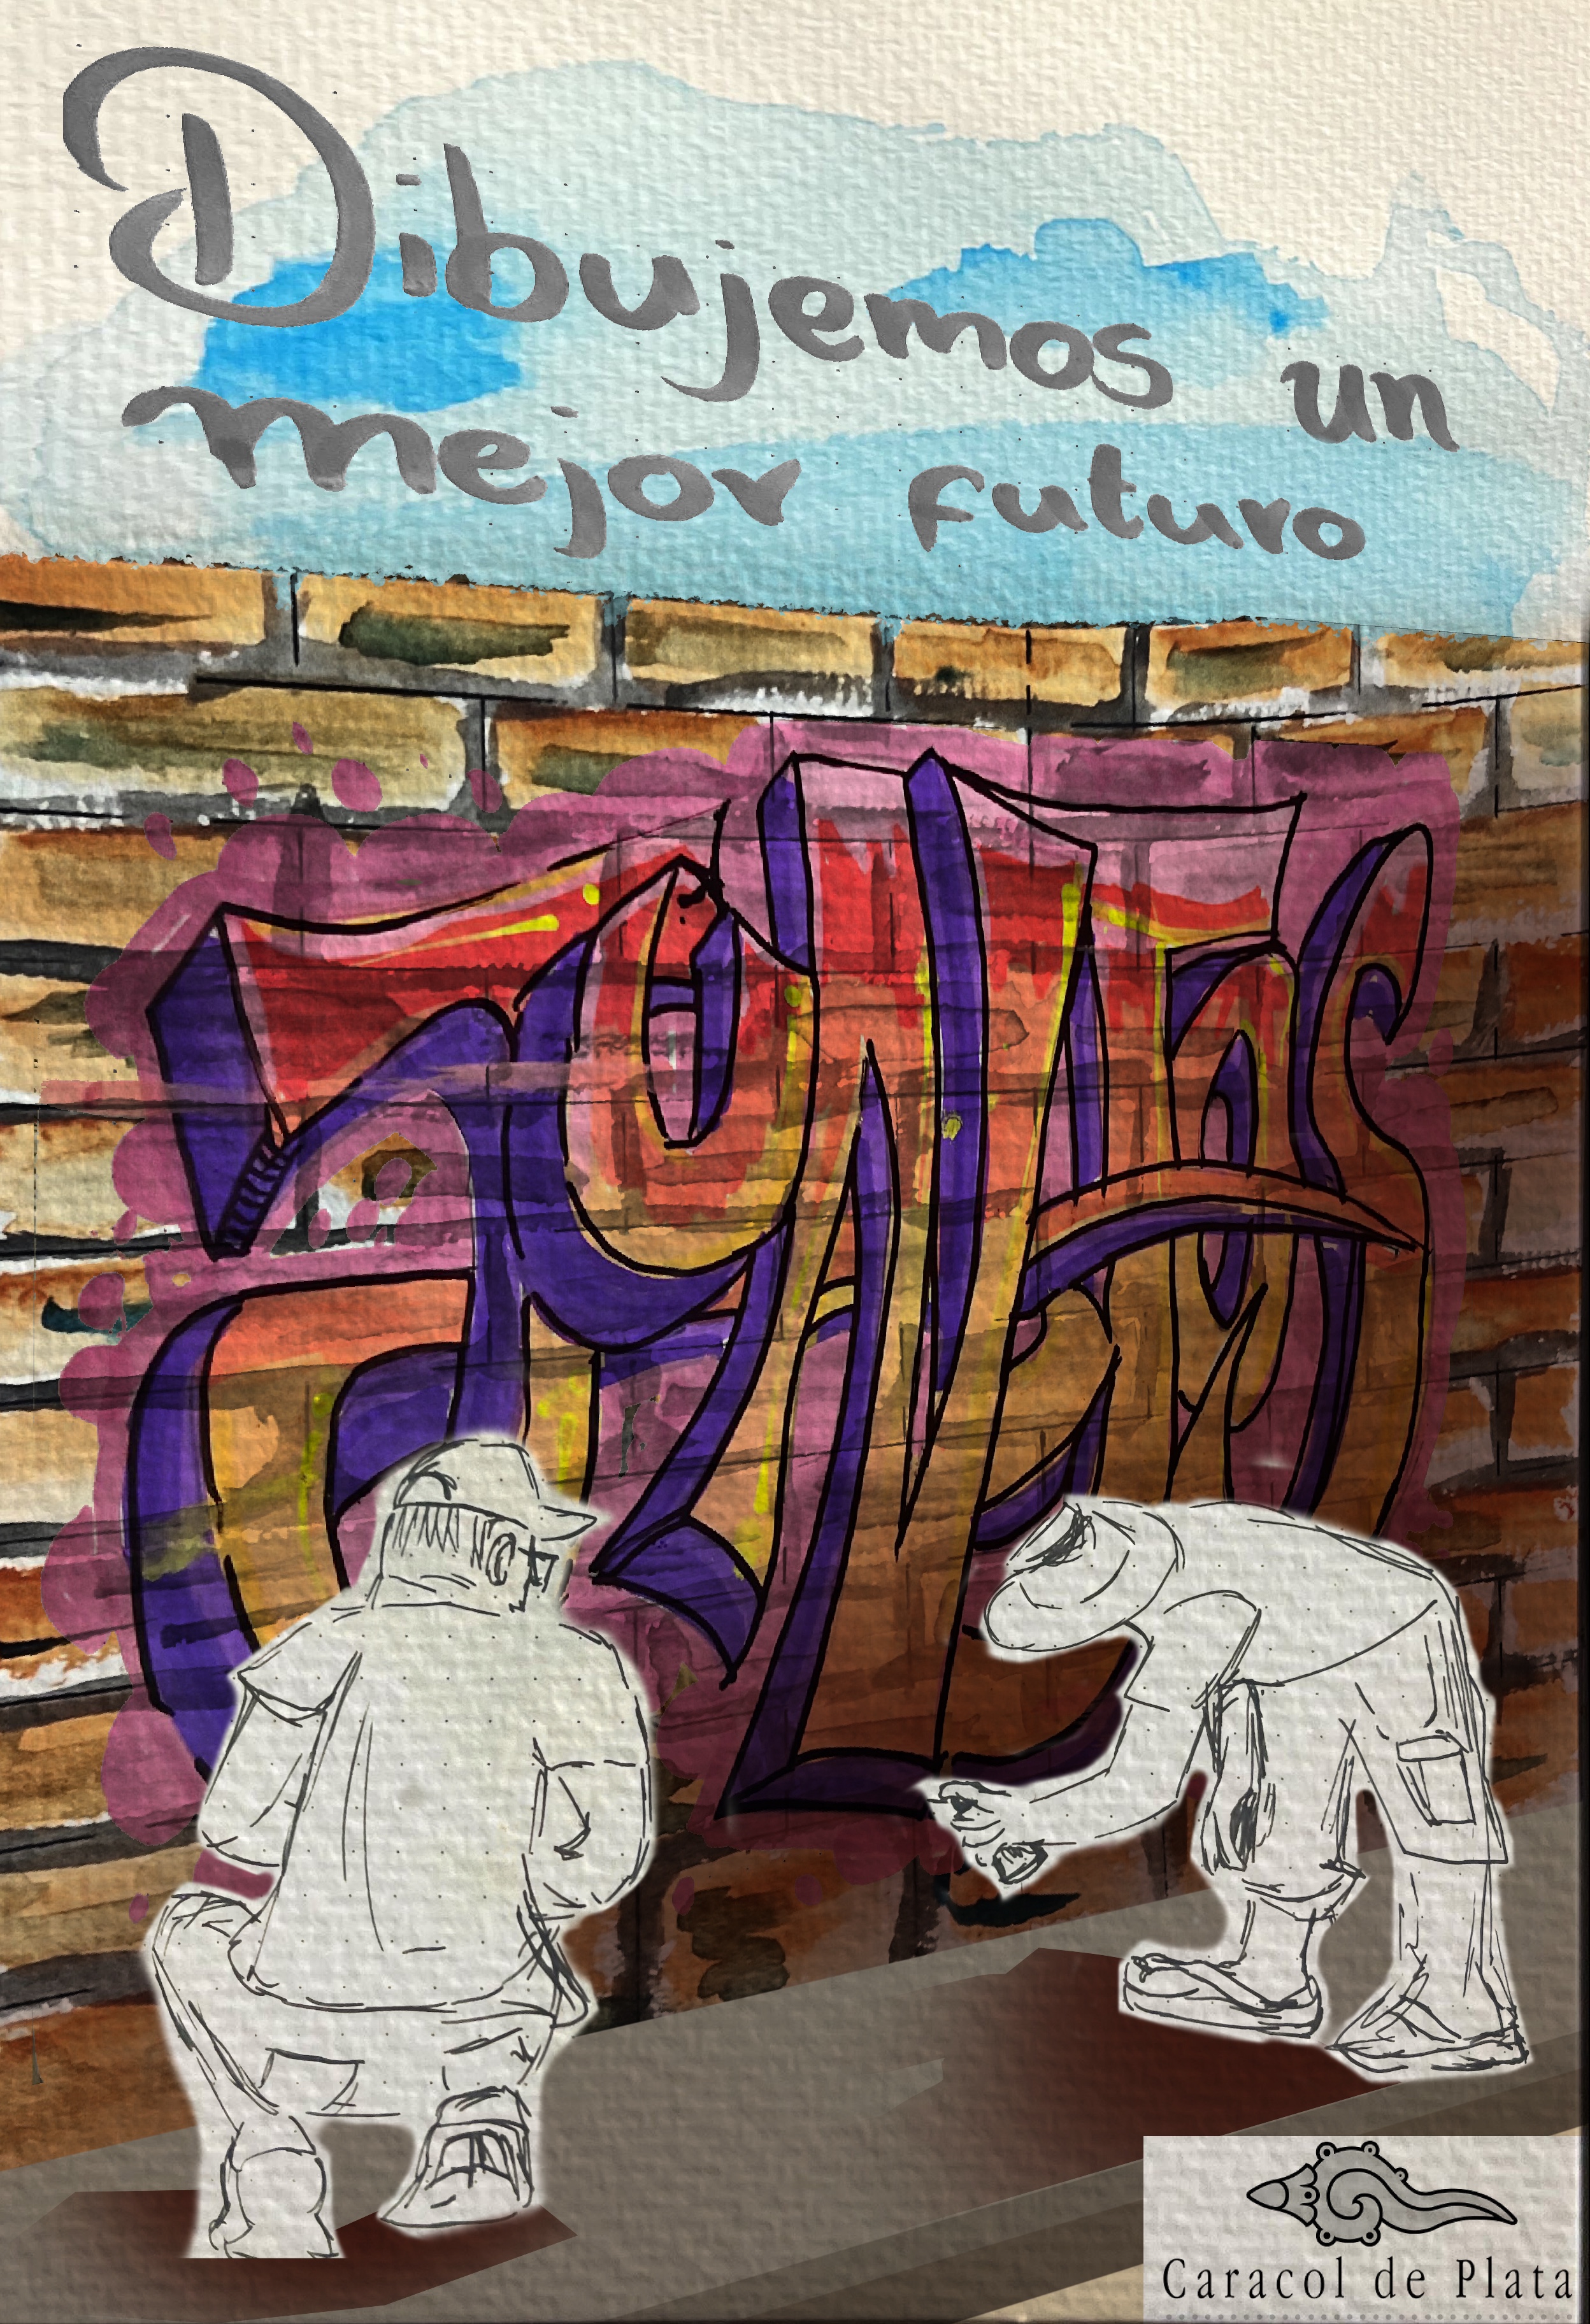 Dibujemos un
mejor futuro
Caracol de Plata